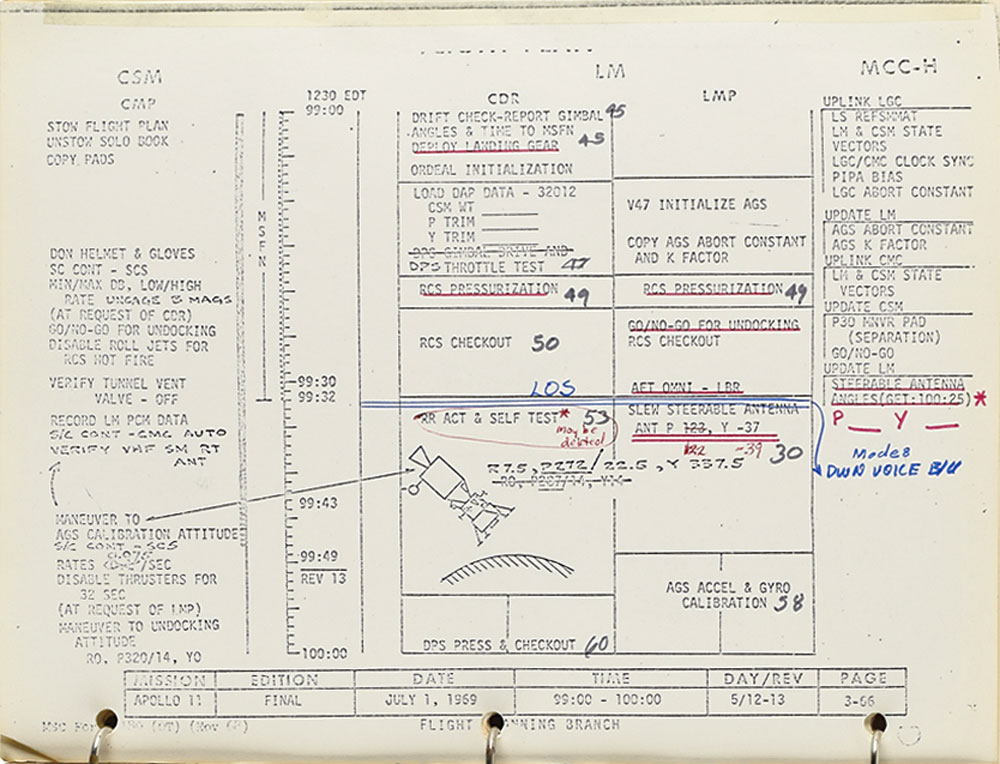 CSM
CMP
STOW FLIGHT PLAN
UNSTOW SOLO BOOK
COPY PADS
DON HELMET & GLOVES
SC CONT - SCS
MIN/MAX DB, LOW/HIGH
RATE UNCAGE 3 MAGS
(AT REQUEST OF CDR)
GO/NO-GO FOR UNDOCKING
DISABLE ROLL JETS FOR
RCS HOT FIRE
VERIFY TUNNEL VENT
VALVE - OFF
RECORD LM PCM DATA
S/C CONT - CMC AUTO
VERIFY VHF SM RT
ANT
MANEUVER TO
AGS CALIBRATION ATTITUDE
S/C CONT - SCS
RATES /SEC
DISABLE THRUSTERS FOR
32 SEC
(AT REQUEST OF LMP)
MANEUVER TO UNDOCKING
ATTITUDE
RO, P320/14, YO
1230 EDT
99:00
MSFN
99:30
99:32
99:43
99:49
REV 13
100:00
LM
CDR
DRIFT CHECK-REPORT GIMBAL 45
ANGLES & TIME TO MSFN
DEPLOY LANDING GEAR 45
ORDEAL INITIALIZATION
LOAD DAP DATA - 32012
CSM WT
P TRIM
Y TRIM
DPS GIMBAL DRIVE AND
DPS THROTTLE TEST 47
RCS PRESSURIZATION 49
RCS CHECKOUT 50
LOS
RR ACT & SELF TEST* 53
may be
deleted
R7.5, P272/22.5, Y 337.5
RO, P287/14, Y14
DPS PRESS & CHECKOUT 60
LMP
V47 INITIALIZE AGS
COPY AGS ABORT CONSTANT
AND K FACTOR
RCS PRESSURIZATION 49
GO/NO-GO FOR UNDOCKING
RCS CHECKOUT
AFT OMNI - LBR
SLEW STEERABLE ANTENNA
ANT P 123, Y -37
122 -39 30
AGS ACCEL & GYRO
CALIBRATION 58
MCC-H
UPLINK LGC
LS REFSMMAT
LM & CSM STATE
VECTORS
LGC/CMC CLOCK SYNC
PIPA BIAS
LGC ABORT CONSTANT
UPDATE LM
AGS ABORT CONSTANT
AGS K FACTOR
UPLINK CMC
LM & CSM STATE
VECTORS
UPDATE CSM
P30 MNVR PAD
(SEPARATION)
GO/NO-GO
UPDATE LM
STEERABLE ANTENNA
ANGLES(GET:100:25)*
P__ Y__
Mode 8
DWN VOICE B/U
MISSION EDITION DATE TIME DAY/REV PAGE
APOLLO 11 FINAL JULY 1, 1969 99:00 - 100:00 5/12-13 3-66
MSC (OT) (Nov 68) FLIGHT PLANNING BRANCH